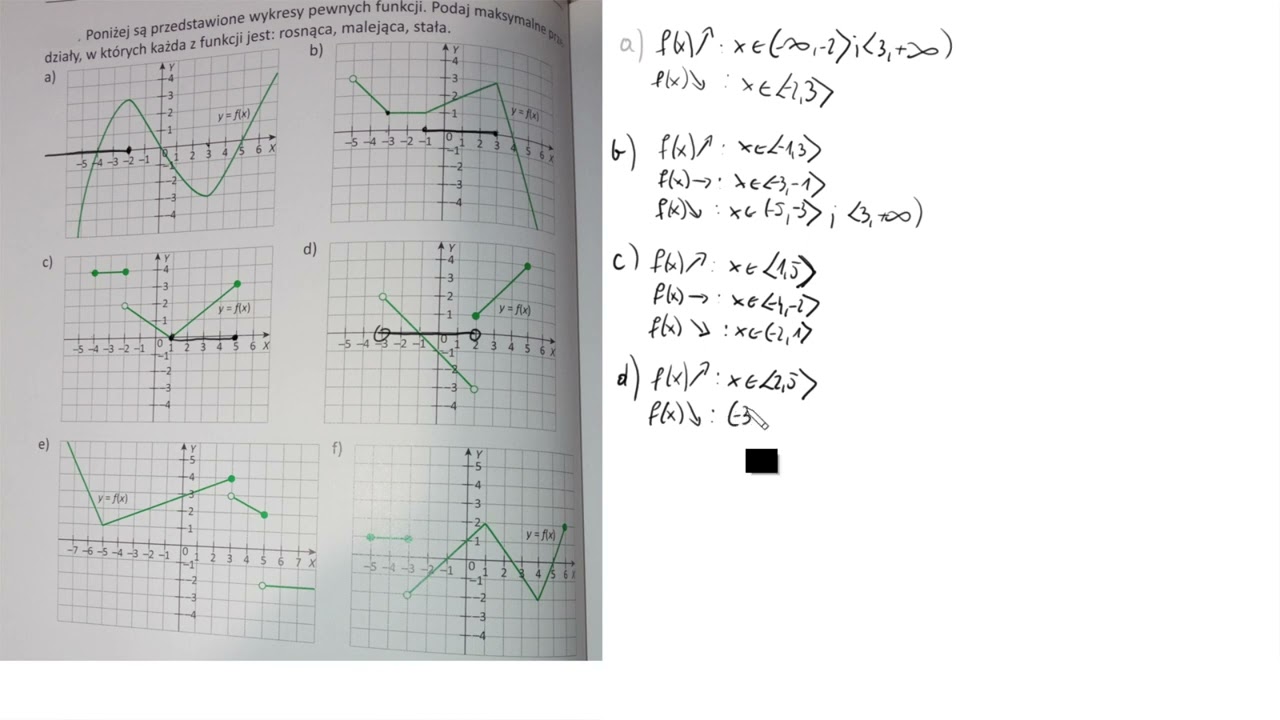 Poniżej są przedstawione wykresy pewnych funkcji. Podaj maksymalne
działy, w których każda z funkcji jest: rosnąca, malejąca, stała.
a)
Y
4
3
2
1
y = f(x)
-5 -4 -3 -2 -1 0 1 2 3 4 5 6 X
-1
-2
-3
-4
b)
Y
4
3
2
1
y = f(x)
-5 -4 -3 -2 -1 0 1 2 3 4 5 6 X
-1
-2
-3
-4
c)
Y
4
3
2
1
y = f(x)
-5 -4 -3 -2 -1 0 1 2 3 4 5 6 X
-1
-2
-3
-4
d)
Y
4
3
2
1
y = f(x)
-5 -4 -3 -2 -1 0 1 2 3 4 5 6 X
-1
-2
-3
-4
e)
Y
5
4
3
2
1
y = f(x)
-7 -6 -5 -4 -3 -2 -1 0 1 2 3 4 5 6 7 X
-1
-2
-3
-4
f)
Y
5
4
3
2
1
y = f(x)
-5 -4 -3 -2 -1 0 1 2 3 4 5 6
-1
-2
-3
-4
a) f(x)↗ : x∈(-∞,-2⟩;⟨3,+∞)
f(x)↘ : x∈⟨-2,3⟩
b) f(x)↗ : x∈⟨-1,3⟩
f(x)→ : x∈⟨-3,-1⟩
f(x)↘ : x∈(-5,-3⟩ ; ⟨3,+∞)
c) f(x)↗ : x∈⟨1,5⟩
f(x)→ : x∈⟨-4,-2⟩
f(x)↘ : x∈(-2,1⟩
d) f(x)↗ : x∈⟨2,5⟩
f(x)↘ : (-3